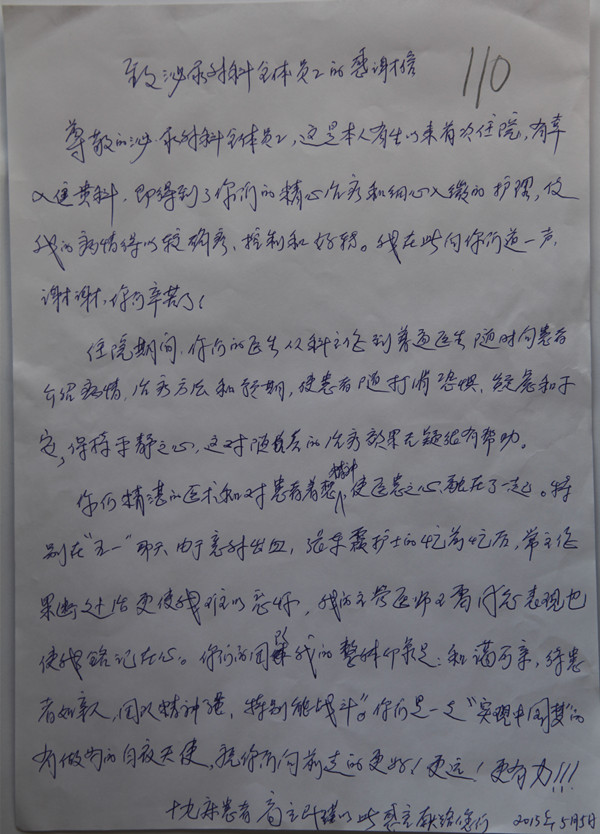 致泌尿外科全体员工的感谢信
110
尊敬的泌尿外科全体员工,这是本人有生以来首次住院,有幸
入住贵科,即得到了你们的精心治疗和细心入微的护理,使
我的病情得以较确疗、控制和好转。我在此向你们道一声,
谢谢,你们辛苦了!
住院期间,你们的医生从科主任到普通医生随时向患者
介绍病情,治疗方法和预期,使患者随打消恐惧、疑虑和不
安,保持平静之心,这对随后的治疗效果无疑很有帮助。
你们精湛的医术和对患者着想精神,使医患之心融在了一起。特
别在"五一"那天由于意外出血,护士的忙前忙后,常主任
果断处治更使我难以忘怀,我的主管医师王的表现也
使我铭记在心。你们的团队给我的整体印象是:和蔼可亲,待患
者如亲人,团队精神强,特别能战斗。你们是一支"实现中国梦"的
有做为的白衣天使,祝你们向前走的更好!更远!更有力!!!
十九床患者 以此感言献给你们 2015年5月5日